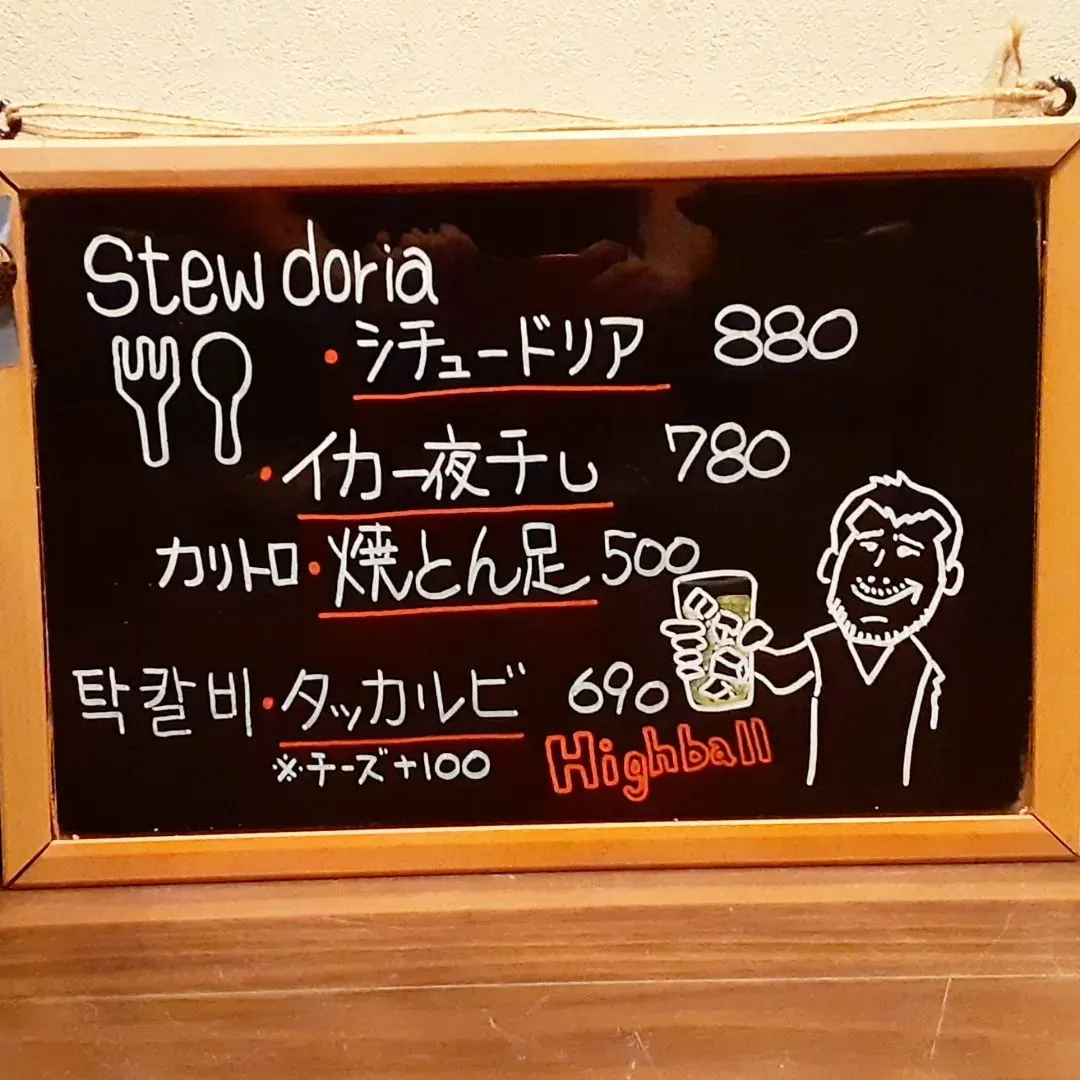 Stew doria
・シチュードリア 880
・イカ一夜干し 780
カリトロ・焼とん足 500
탁칼비・タッカルビ 690
※チーズ+100
Highball